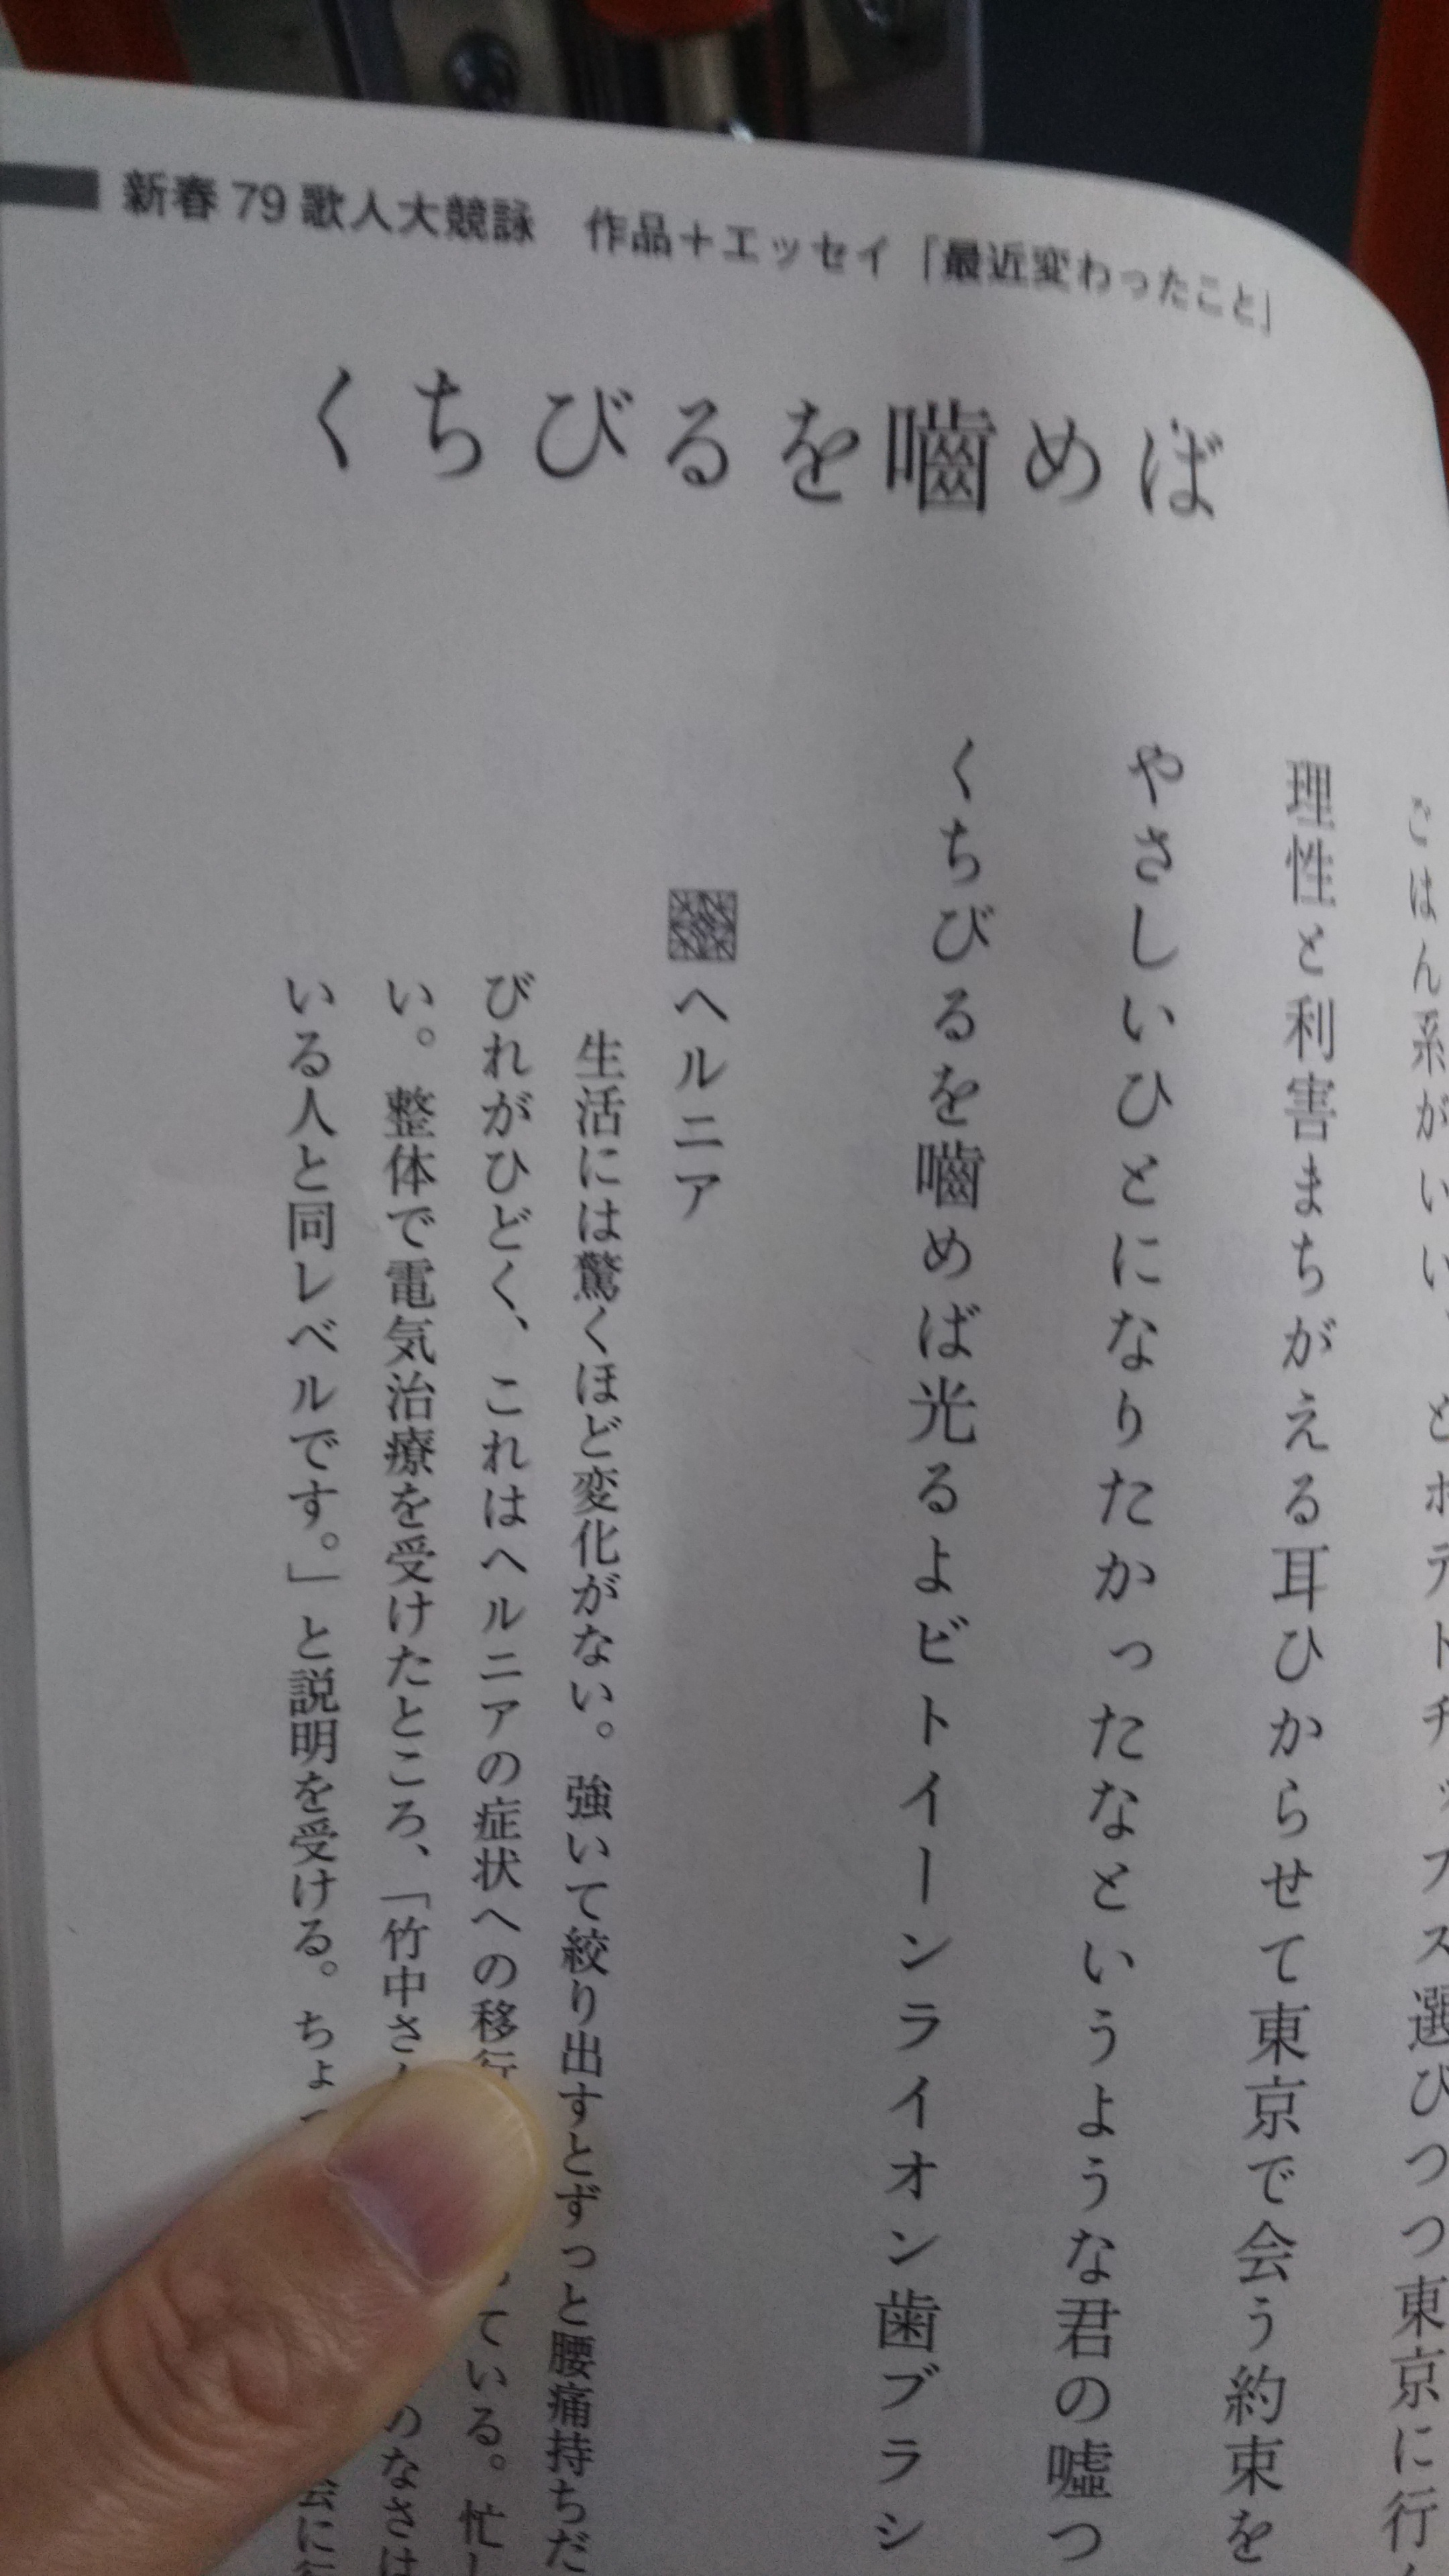 新春79歌人大競詠　作品＋エッセイ「最近変わったこと」
くちびるを嚙めば
ごはん系がいい、とポテトチップス選びつつ東京に行
理性と利害まちがえる耳ひからせて東京で会う約束を
やさしいひとになりたかったなというような君の嘘つ
くちびるを嚙めば光るよビトイーンライオン歯ブラシ
ヘルニア
生活には驚くほど変化がない。強いて絞り出すとずっと腰痛持ちだ
びれがひどく、これはヘルニアの症状への移行 ている。忙し
い。整体で電気治療を受けたところ、「竹中さ のなさは
いる人と同レベルです。」と説明を受ける。ちょっ 会に行